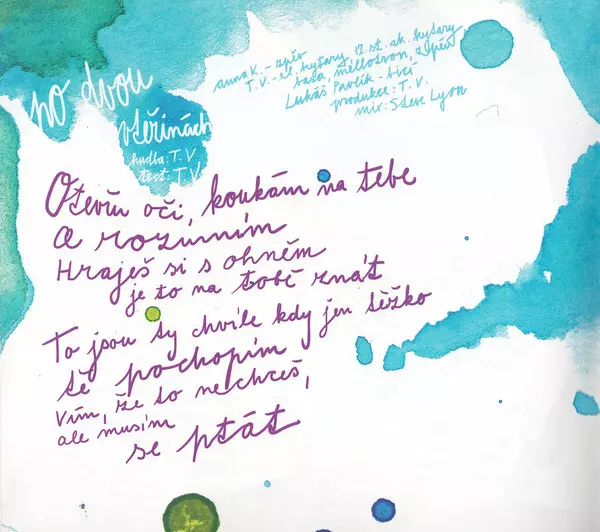 po dvou
vteřinách
hudba: T.V.
text: T.V.
anna K. - zpěv
T.V. - el. kytary, 12 st. ak. kytary
basa, mellotron, zpěv
Lukáš Pavlík - bicí
produkce: T.V.
mix: Steve Lyon
Otevřu oči, koukám na tebe
A rozumím
Hraješ si s ohněm
je to na tobě znát
To jsou ty chvíle kdy jen těžko
tě pochopím
Vím, že to nechceš,
ale musím
se ptát